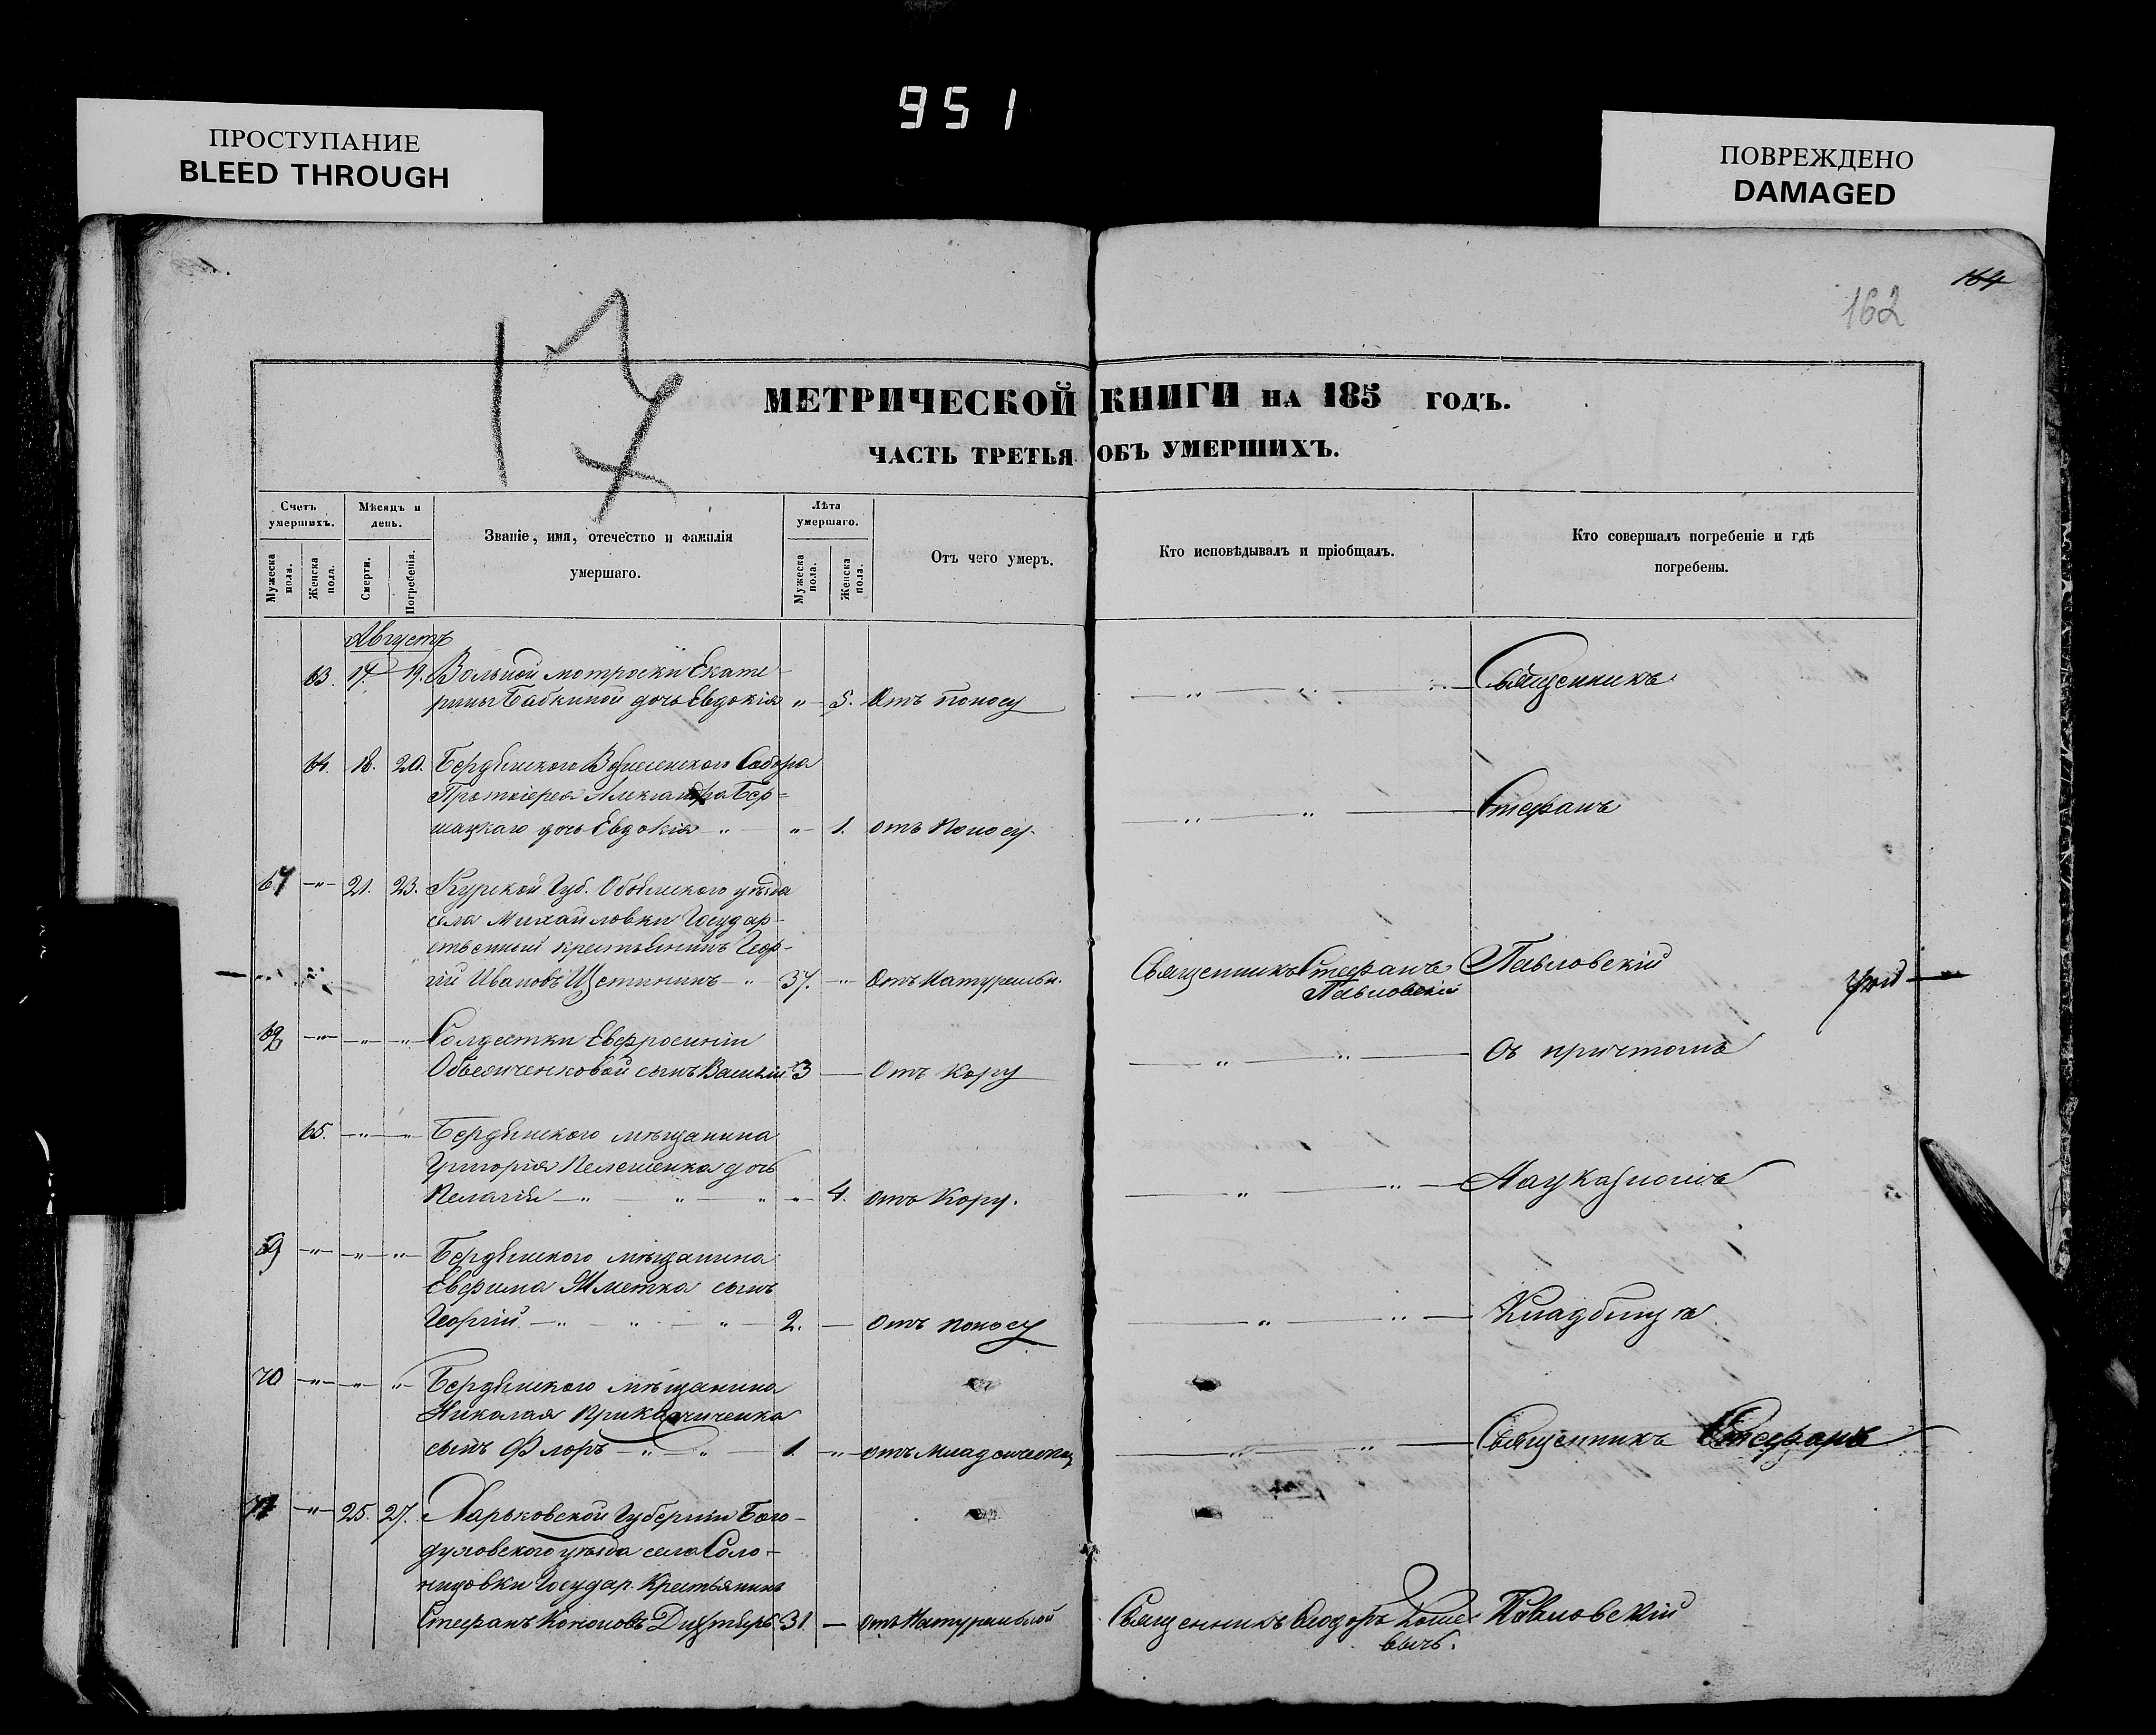 951
ПРОСТУПАНИЕ
BLEED THROUGH
ПОВРЕЖДЕНО
DAMAGED
164
162
17
МЕТРИЧЕСКОЙ КНИГИ НА 185 ГОДЪ.
ЧАСТЬ ТРЕТЬЯ ОБЪ УМЕРШИХЪ.
Счетъ умершихъ.
Мужеска пола.
Женска пола.
Мѣсяцъ и день.
Смерти.
Погребенія.
Званіе, имя, отечество и фамилія умершаго.
Лѣта умершаго.
Мужеска пола.
Женска пола.
Отъ чего умеръ.
Кто исповѣдывалъ и пріобщалъ.
Кто совершалъ погребеніе и гдѣ погребены.
Августъ
63. 17. 19. Вольной мотроски Екате-
рины Бабкиной дочь Евдокія " 5. Отъ поносу
Священникъ
64. 18. 20. Бердянского Вознесенского Собора
Протоіерея Александра Бер=
шацкаго дочь Евдокія " " 1. отъ Поносу.
Стефанъ
67 " 21. 23. Курской Губ. Обоянского уѣзда
села Михайловки Государ-
ственный крестьянинъ Геор-
гій Ивановъ Щетининъ " 37. " Отъ Натуральн.
Священникъ Стефанъ Павловскій
Павловскій
68 " " " Солдатки Евфросиніи
сынъ Василій 3 — Отъ Кору
Съ причтомъ
65. " " Бердянского мѣщанина
Григорія Пелешенка дочь
Пелагія " " " " 4. отъ Кору.
На указномъ
69 " " " Бердянского мѣщанина
Евфима сынъ
Георгій " " " 2. — Отъ поносу
Кладбищѣ.
70 " " " Бердянского мѣщанина
Николая Приказчиченка
сынъ Флоръ " " 1. " отъ
Священникъ Стефанъ
71 " 25. 27. Харьковской Губерніи Бого-
духовского уѣзда села Соло-
ницовки Государ. Крестьянинъ
Стефанъ Кононовъ 31. — отъ Натуральной
Священникъ Ѳеодоръ Павловскій
вичъ.